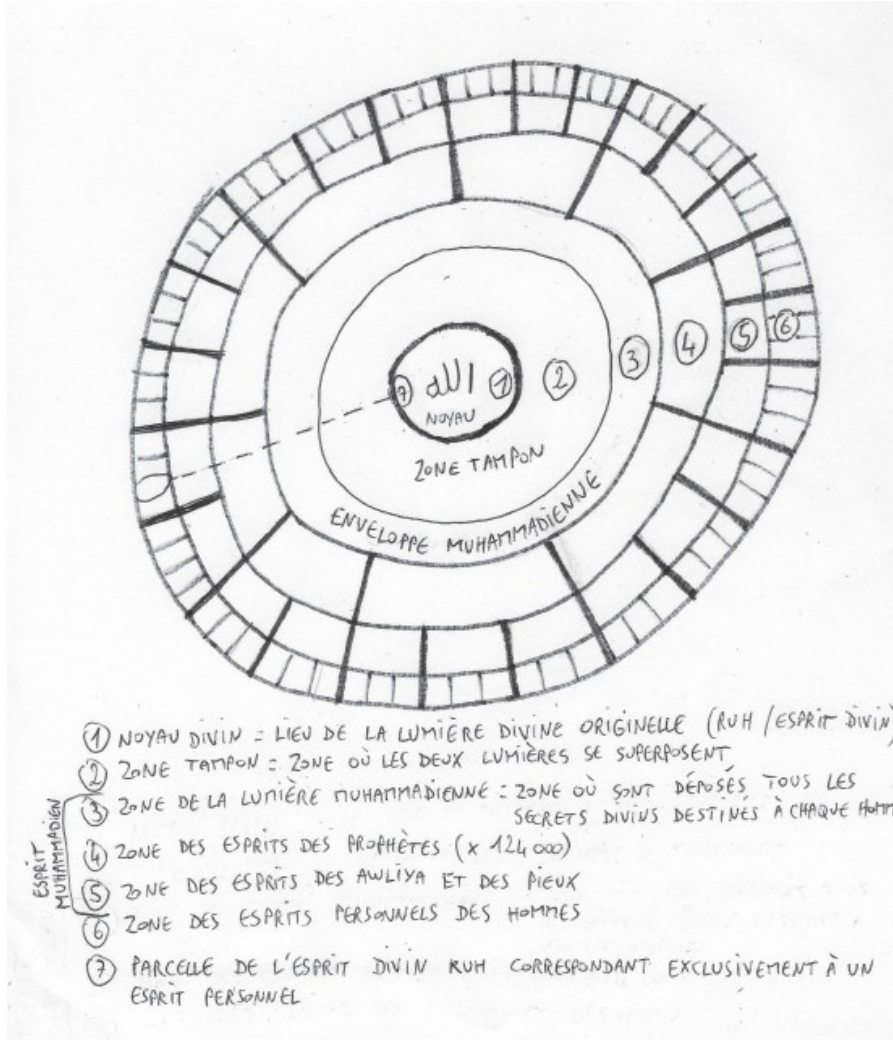 7 الله 1 2 3 4 5 6
NOYAU
ZONE TAMPON
ENVELOPPE MUHAMMADIENNE
1 NOYAU DIVIN = LIEU DE LA LUMIÈRE DIVINE ORIGINELLE (RUH / ESPRIT DIVIN)
2 ZONE TAMPON = ZONE OÙ LES DEUX LUMIÈRES SE SUPERPOSENT
3 ZONE DE LA LUMIÈRE MUHAMMADIENNE = ZONE OÙ SONT DÉPOSÉS TOUS LES
SECRETS DIVINS DESTINÉS À CHAQUE HOMM
4 ZONE DES ESPRITS DES PROPHÈTES (x 124 000)
5 ZONE DES ESPRITS DES AWLIYA ET DES PIEUX
6 ZONE DES ESPRITS PERSONNELS DES HOMMES
ESPRIT
MUHAMMADIEN
7 PARCELLE DE L'ESPRIT DIVIN RUH CORRESPONDANT EXCLUSIVEMENT À UN
ESPRIT PERSONNEL